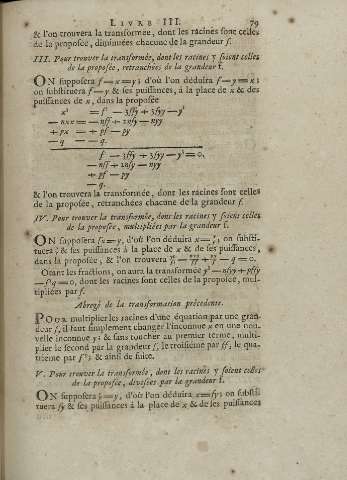 LIVRE III. 79
& l'on trouvera la transformée, dont les racines sont celles
de la proposée, diminuées chacune de la grandeur f.
III. Pour trouver la transformée, dont les racines y soient celles
de la proposée, retranchées de la grandeur f.
ON supposera f — x = y; d'où l'on déduira f — y = x;
on substituera f — y & ses puissances, à la place de x & des
puissances de x, dans la proposée
x³ = f³ — 3ffy + 3fyy — y³
— nxx = — nff + 2nfy — nyy
+ px = + pf — py
— q = — q.
f³ — 3ffy + 3fyy — y³ = 0,
— nff + 2nfy — nyy
+ pf — py
— q.
& l'on trouvera la transformée, dont les racines sont celles
de la proposée, retranchées chacune de la grandeur f.
IV. Pour trouver la transformée, dont les racines y soient celles
de la proposée, multipliées par la grandeur f.
ON supposera fx = y, d'où l'on déduira x = y/f; on substi-
tuera y/f & ses puissances à la place de x & de ses puissances,
dans la proposée, & l'on trouvera y³/f³ — nyy/ff + py/f — q = 0.
Otant les fractions, on aura la transformée y³ — nfyy + pffy
— f³q = 0, dont les racines sont celles de la proposée, mul-
tipliées par f.
Abregé de la transformation précedente.
POUR multiplier les racines d'une équation par une gran-
deur f, il faut simplement changer l'inconnue x en une nou-
velle inconnue y; & sans toucher au premier terme, multi-
plier le second par la grandeur f, le troisième par ff, le qua-
trième par f³; & ainsi de suite.
V. Pour trouver la transformée, dont les racines y soient celles
de la proposée, divisées par la grandeur f.
ON supposera x/f = y, d'où l'on déduira x = fy; on substi-
tuera fy & ses puissances à la place de x & de ses puissances